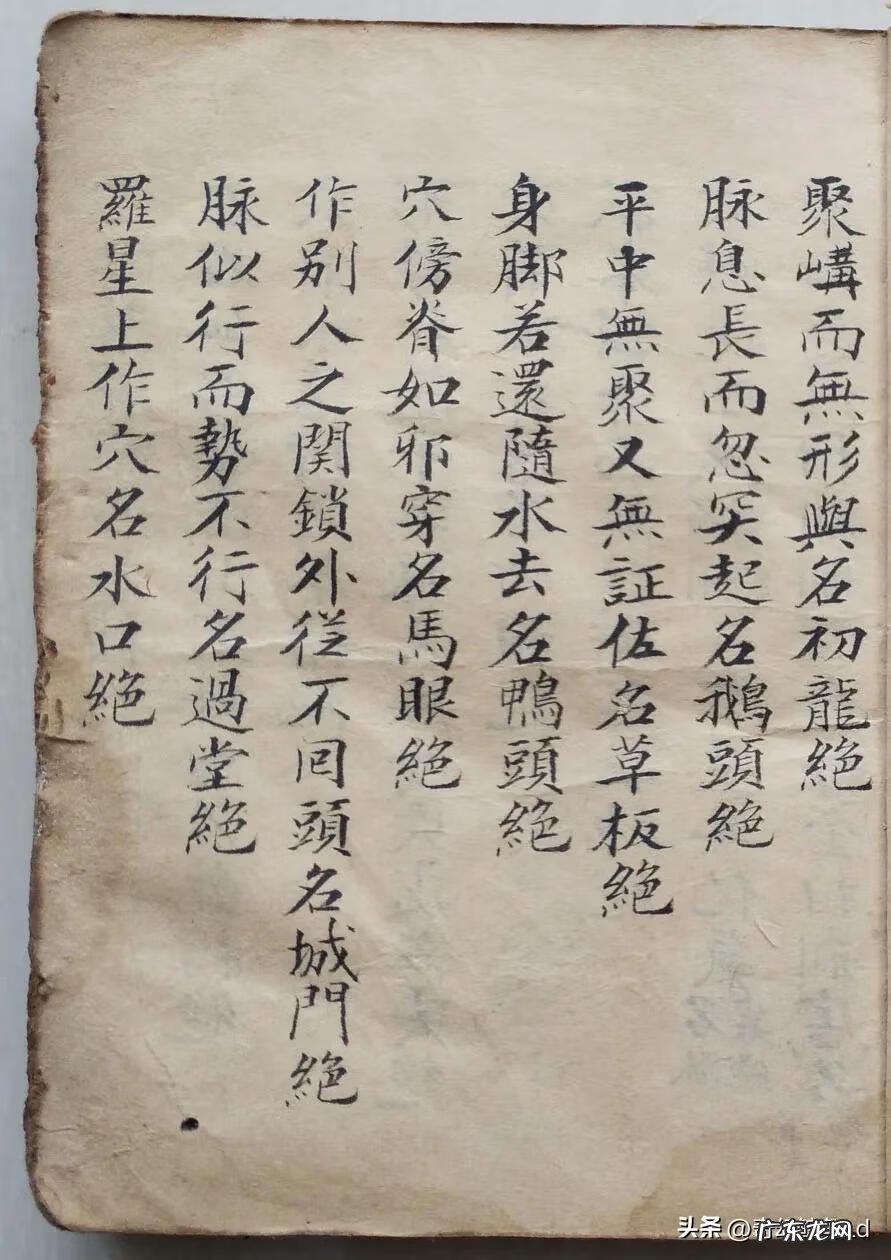 聚㠇而無形與名初龍絕
脉息長而忽突起名鵝頭絕
平中無聚又無証佐名草板絕
身脚若還隨水去名鴨頭絕
穴傍脊如邪穿名馬眼絕
作别人之関鎖外從不囘頭名城門絕
脉似行而勢不行名過堂絕
羅星上作穴名水口絕
头条 @广东龙网